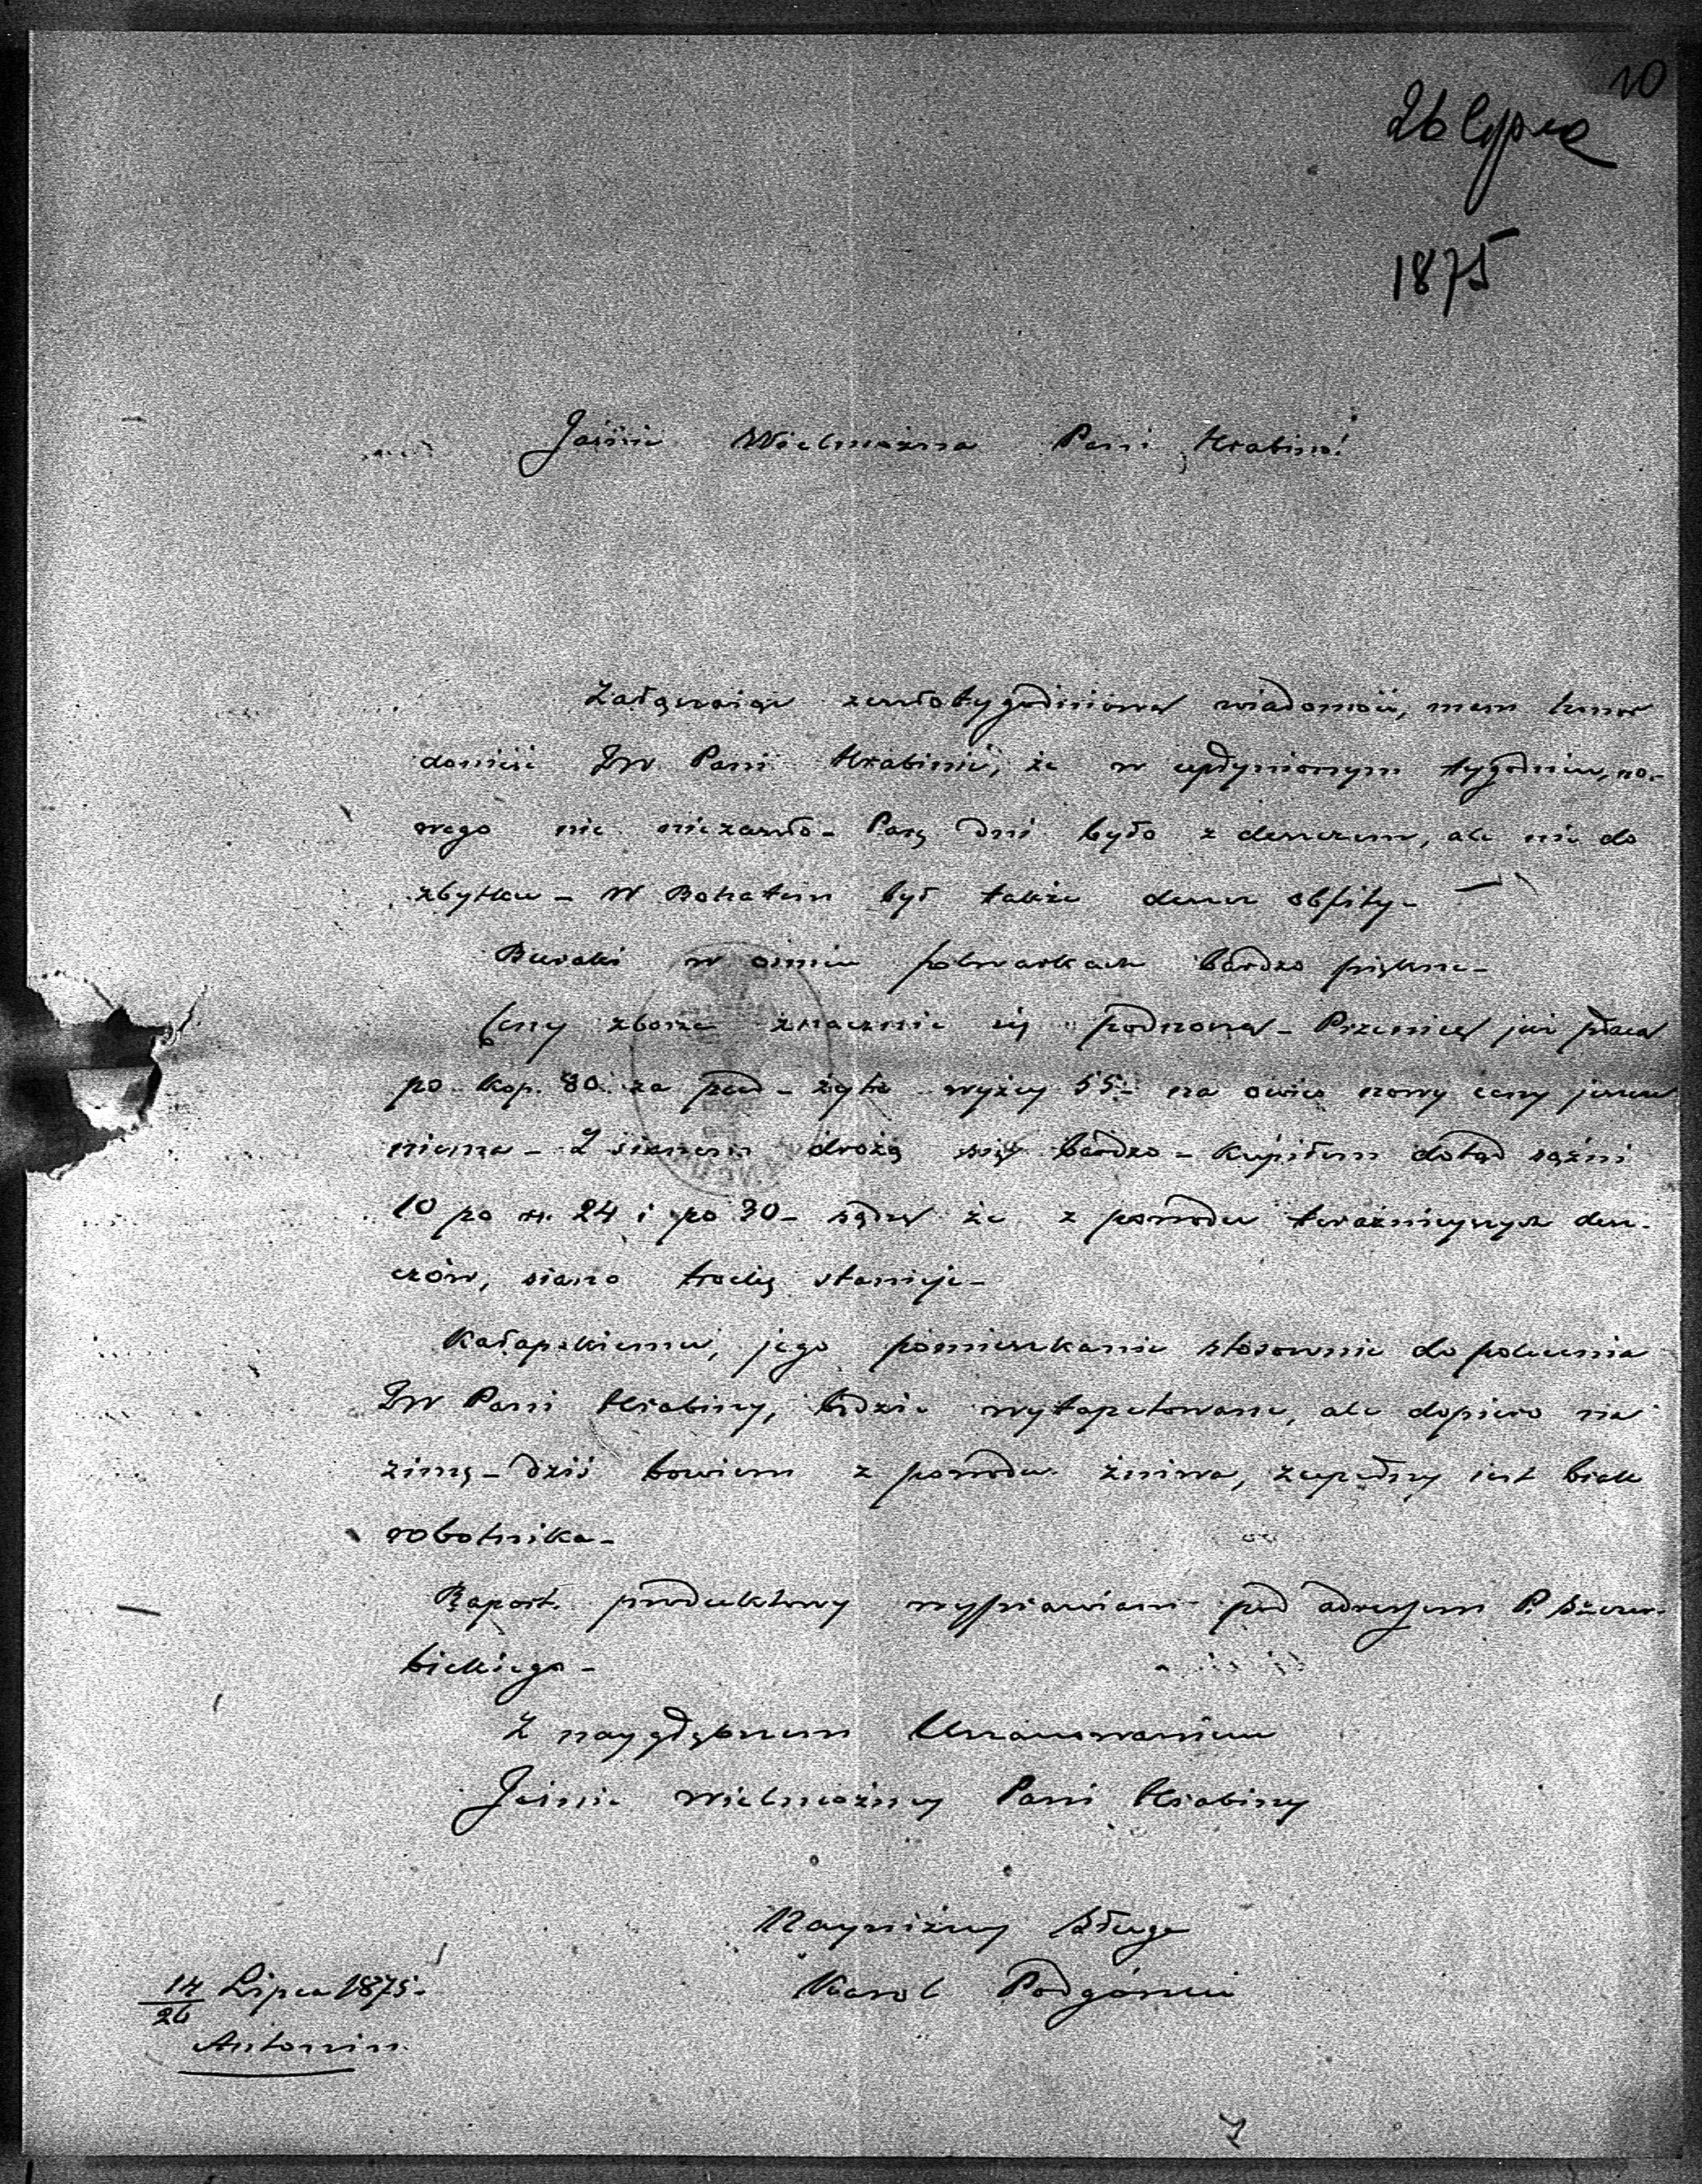 10
26 lypca
1875
Jaśnie Wielmożna Pani Hrabino!
Załączając zeszłotygodniową wiadomość, mam honor
donieść JW. Pani Hrabinie, że w upłynionym tygodniu, no-
wego nic niezaszło - Parę dni było z deszczem, ale nie do
zbytku - W Bohatem był także deszcz obfity -
Buraki w ośmiu folwarkach bardzo piękne -
Ceny zboża znacznie się podnoszą - Pszenicę już płacą
po kop. 80 za pud - żyto wyżey 55 - na owies nowy ceny jeszcze
niema - Z sianem drożą się bardzo - Kupiłem dotąd sążni
10 po rs. 24 i po 30 - sądzę że z powodu teraźnieyszych desz-
czów, siano trochę stanieje -
jego pomieszkanie stosownie do polecenia
JW Pani Hrabiny, będzie wytapetowane, ale dopiero na
zimę - dziś bowiem z powodu żniwa, zupełny jest brak
robotnika -
Raport produktowy wyprawiam pod adressem P. Szczer-
bickiego -
Z naygłębszem Uszanowaniem
Jaśnie Wielmożney Pani Hrabiny
Nayniższy Sługa
Karol Podgórski
14/26 Lipca 1875.
Antonin.